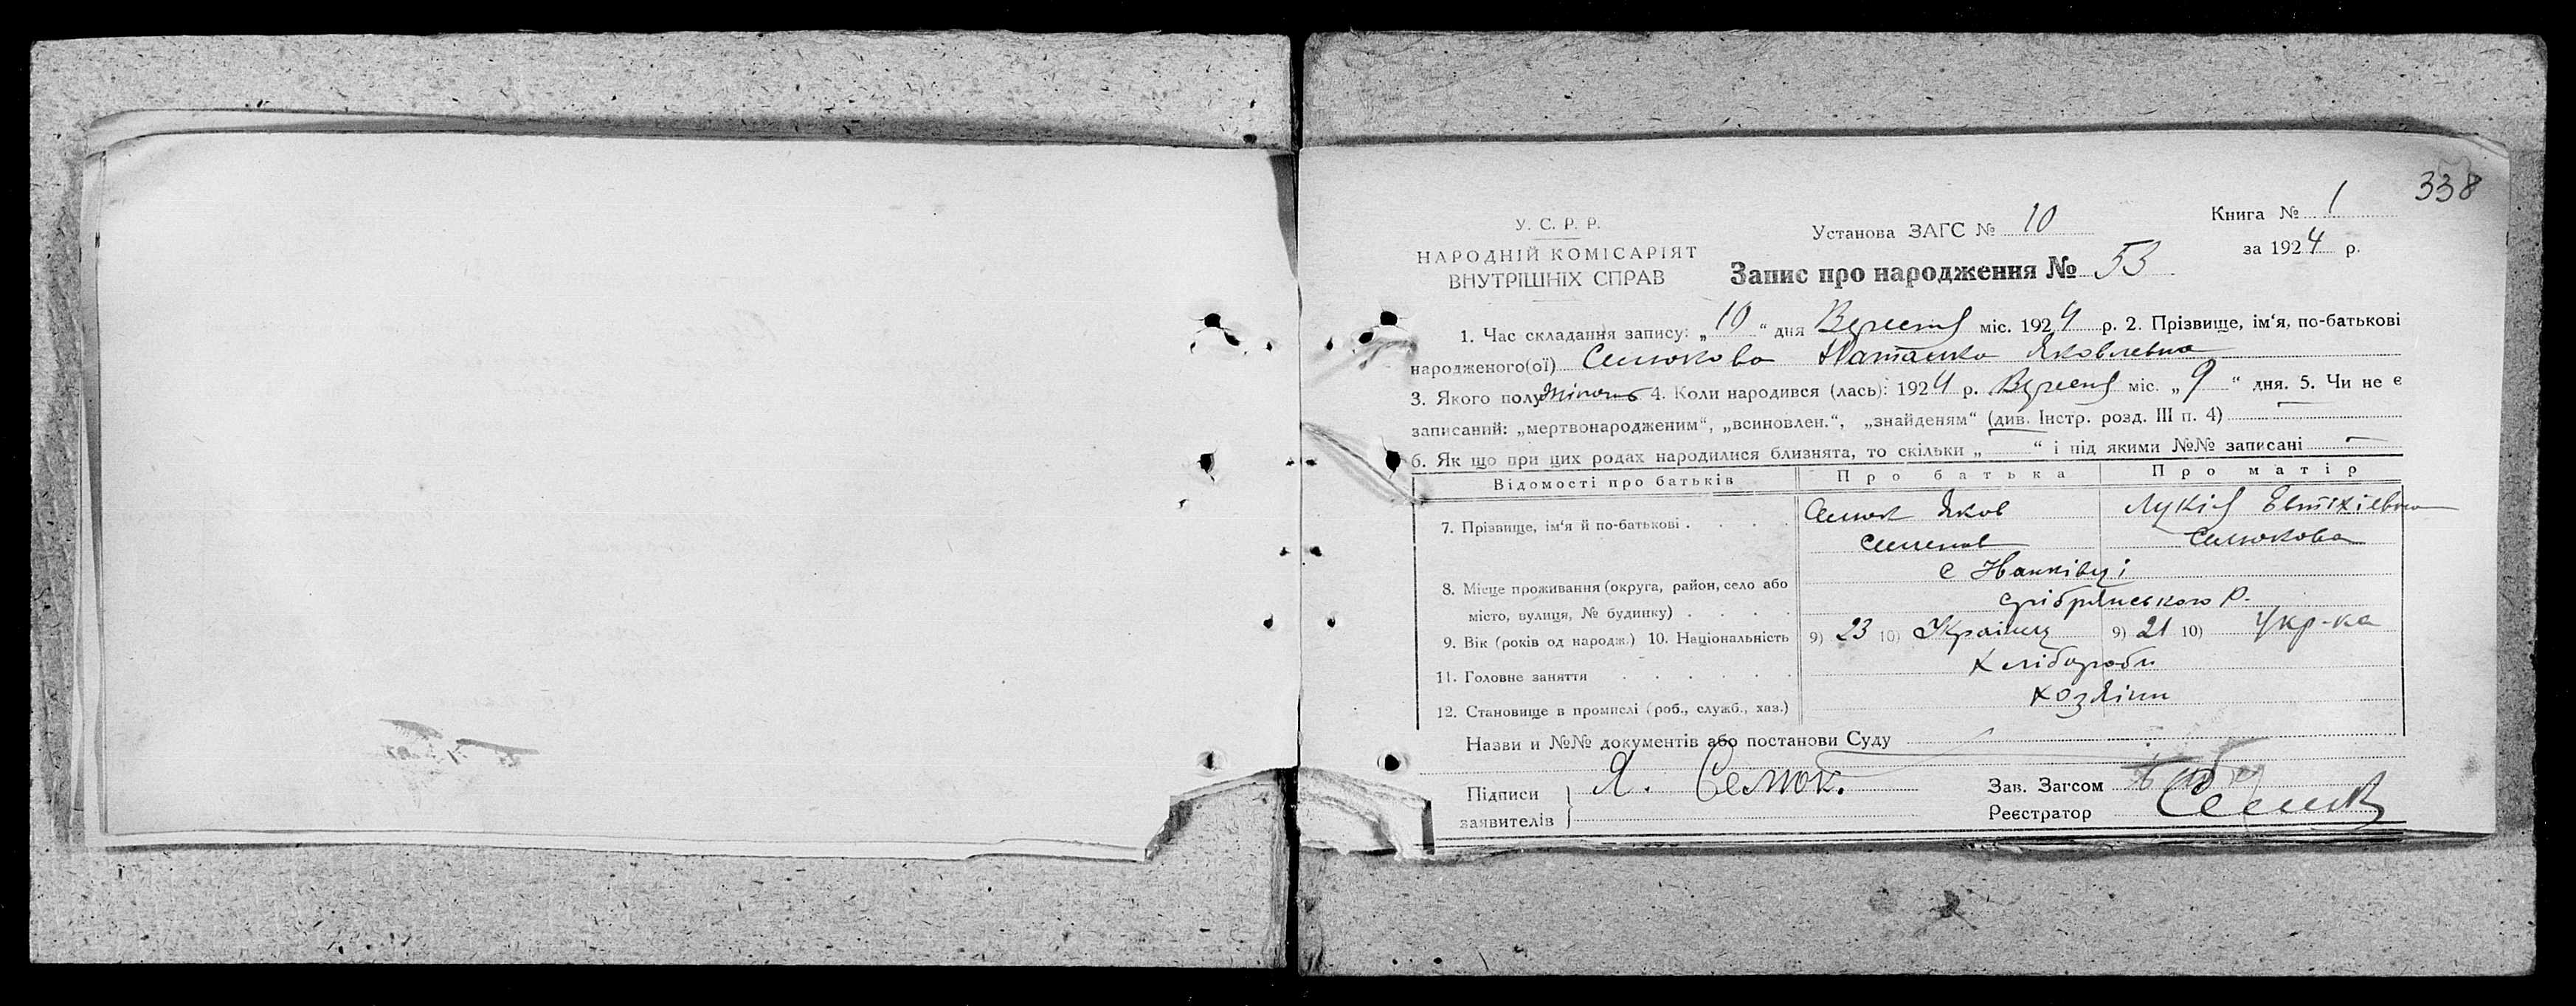 338
У. С. Р. Р.
НАРОДНІЙ КОМІСАРІЯТ
ВНУТРІШНІХ СПРАВ
Установа ЗАГС № 10
Книга № 1
за 1924 р.
Запис про народження № 53
1. Час складання запису: „10“ дня Вересня міс. 1924 р. 2. Прізвище, ім'я, по-батькові
народженого(ої) Семюкова Наталка Яковлевна
3. Якого полу жіночь 4. Коли народився (лась): 1924 р. Вересня міс. „9“ дня. 5. Чи не є
записаний: „мертвонародженим“, „всиновлен.“, „знайденям“ (див. Інстр. розд. III п. 4) —
6. Як що при цих родах народилися близнята, то скільки „ “ і під якими №№ записані —
Відомості про батьків Про батька Про матір
7. Прізвище, ім'я й по-батькові . . . . Семюк Яков Лукія Евтихіевна
Семенов Семюкова
8. Місце проживання (округа, район, село або с Іванківці
місто, вулиця, № будинку) . . . . Срібрянського Р.
9. Вік (років од народж.) 10. Національність 9) 23 10) Українец 9) 21 10) Укр-ка
11. Головне заняття . . . . . . Хлібороби
12. Становище в промислі (роб., служб., хаз.) хозяіни
Назви и №№ документів або постанови Суду
Підписи Я. Семюк.
заявителів
Зав. Загсом
Реєстратор